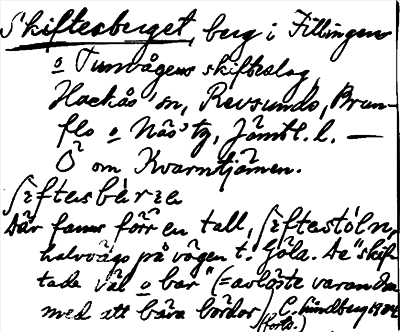 Skiftesberget, berg i Fillingen
o Tunvågens skifteslag,
Hackås sn, Revsunds, Brun-
flo o Näs tg, Jämtl. l. —
Ö om Kvarntjärnen.
Där fanns förr en tall,
halvvägs på vägen t. Göla. De "skif-
tade väl o bar" (= avlöste varandra
med att bära bördor) C. Lindberg
(forts.)